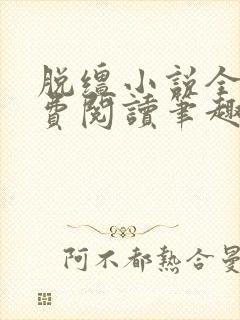 脱纏小说全
費閱讀筆趣
阿不都熱合曼